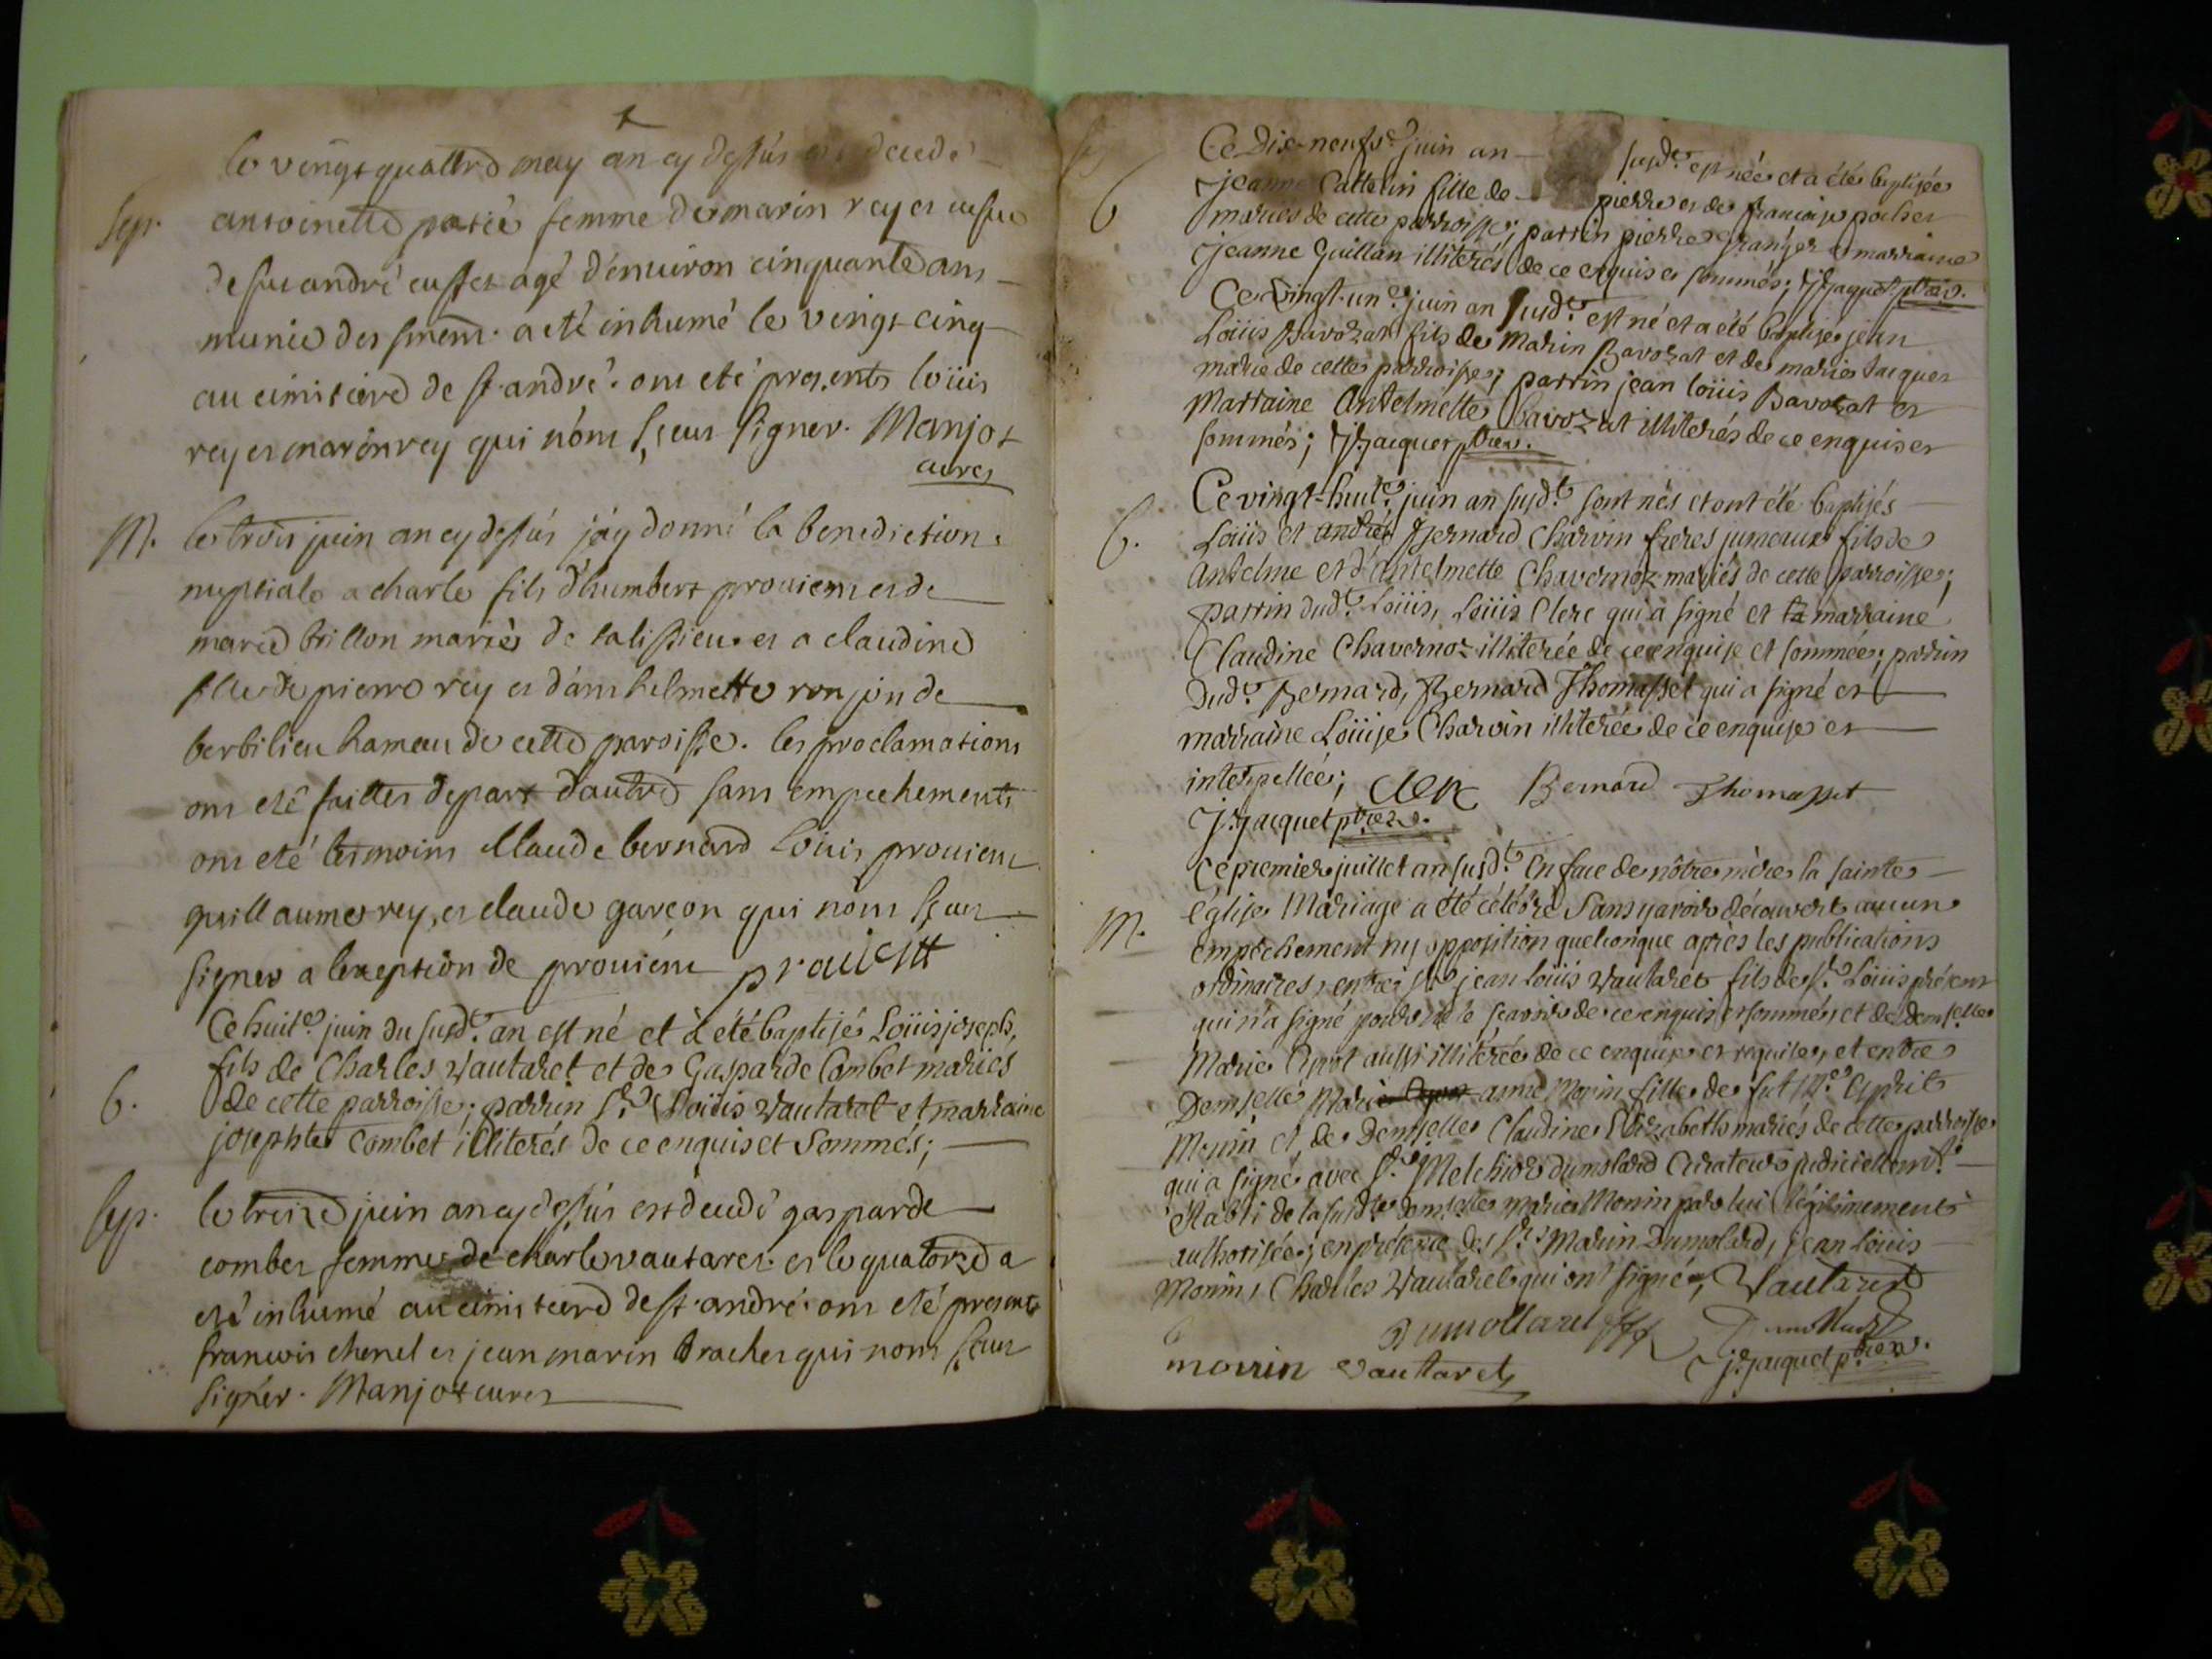 le vingt quattre may an cy dessus est decedé
sep. antoinette patié femme de marin rey et veufue
de feu andré cusset agé d'enuiron cinquante ans
munie des srem. a eté inhumé le vingt cinq
au cimitiere de st. andré. ont eté presents loüis
rey et marin rey qui n'ont sçeus signer. Manjot
curez
M. le trois juin an cy dessus j'ay donné la benediction
nuptiale a charle fils d'humbert prouient et de
marie brillon mariés de talissieu. et a claudine
fille de pierre rey et d'anthelmette ronjon de
berbilieu hameau de cette paroisse. les proclamations
ont eté faittes de part d'autre sans empechements
ont eté tesmoins Claude bernard Loüis prouient
guillaume rey, et claude garçon qui n'ont sçeus
signer a l'exeption de prouient prouient
Ce huite. juin du susdt. an est né et à été baptisé Loüis joseph,
fils de Charles Vautaret et de Gasparde Combet mariés
b. de cette parroisse; parrin Sr. Loüis Vautaret et marraine
josephte Combet illiterés de ce enquis et sommés;
sep. le treize juin an cy dessus est decedé gasparde
combet femme de charle vautaret. et le quatorze a
eté inhumé au cimitiere de st. andré. ont eté presents
francois chenel et jean marin tracher qui n'ont sçeus
signer. Manjot curez
Ce dix-neufse. juin an susdt. est née et a été baptisée
b Jeanne Catterin fille de pierre et de françoise pochet
mariés de cette parroisse; parrin pierre Granger et marraine
Jeanne Guillan illiterés de ce enquis et sommés; J. Jacquet ptre v.
Ce vingt-une. juin an susdt. est né et a été baptisé jean
Loüis Bavozat fils de Marin Bavozat et de marie Jacques
mariés de cette parroisse; parrin jean loüis Bavozat et
Marraine Antelmette Bavozat illiterés de ce enquis et
sommés; J. Jacquet ptre v.
Ce vingt-huite. juin an susdt. sont nés et ont été baptisés
b. Loüis et andré Bernard Charvin freres jumeaux fils de
Antelme et d'Antelmette Chavornoz mariés de cette parroisse;
parrin dudt. Loüis, Loüis Clerc qui a signé et la marraine
Claudine Chavornoz illiterée de ce enquise et sommée; parrin
dudt. Bernard, Bernard Thomasset qui a signé et
marraine Loüise Charvin illiterée de ce enquise et
interpellée; Clerc Bernard Thomasset
J. Jacquet ptre v.
Ce premier juillet an susdt. en face de nôtre mère la sainte
M. Eglise Mariage a été célébré sans y avoir découvert aucun
empêchement ny opposition quelconque après les publications
ordinaires, entre sr. jean Loüis Vautaret fils de sr. Loüis présent
qui n'a signé pour ne le sçavoir de ce enquis et sommé, et de demselle
Marie Aynot aussi illiterée de ce enquise et requise, et entre
Demselle Marie Aynot anne Monin fille de fut Mre. Esprit
Monin et de Demselle Claudine Elizabeth mariés de cette parroisse
qui a signé avec sr. Melchior Dumolard Curateur judiciellemt.
établi de la susdte. demselle Marie Monin par lui légitimement
authorisée; en présence des srs. Marin Dumolard, jean Loüis
Monin, Charles Vautaret qui ont signé, Vautaret
Dumollard Dumollard
monin Vautaret J. Jacquet ptre v.